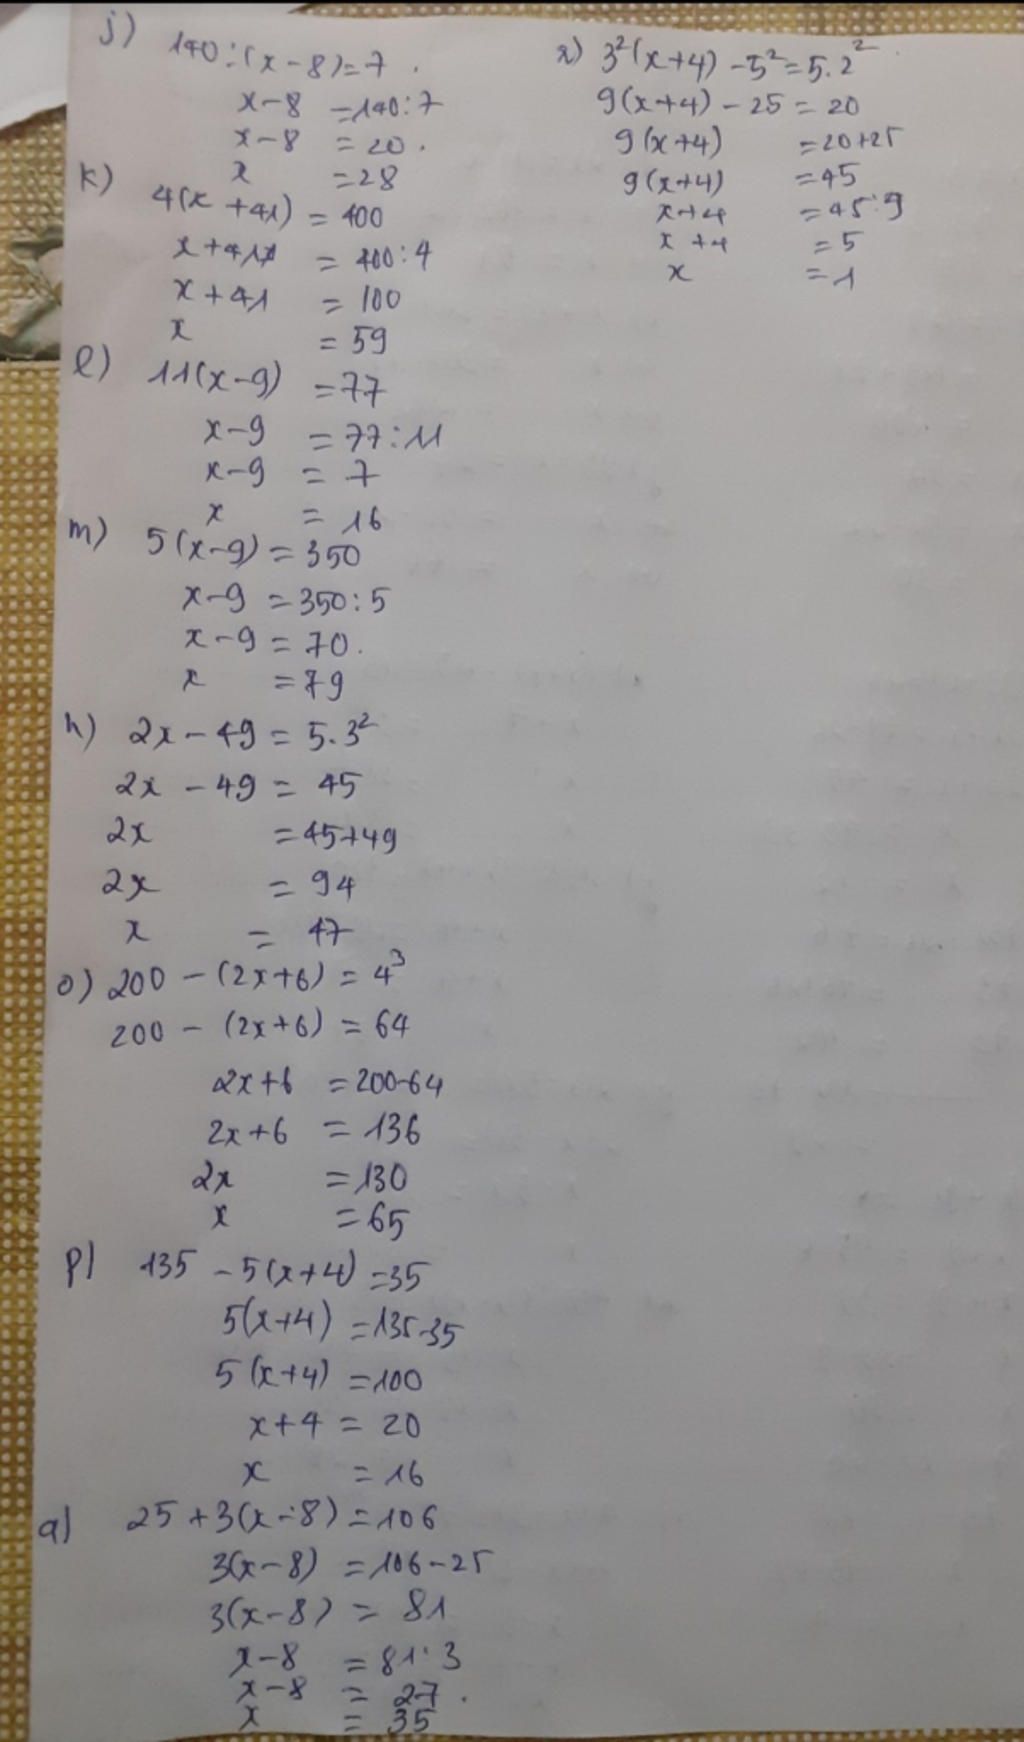 j) 140:(x-8)=7.
x-8 =140:7
x-8 = 20.
x =28
k) 4(x+41) = 400
x+41 = 400:4
x+41 = 100
x = 59
l) 11(x-9) =77
x-9 =77:11
x-9 = 7
x = 16
m) 5(x-9)=350
x-9 =350:5
x-9 = 70.
x =79
n) 2x-49 = 5.3²
2x - 49 = 45
2x =45+49
2x = 94
x = 47
o) 200 - (2x+6) = 4³
200 - (2x+6) = 64
2x+6 =200-64
2x+6 = 136
2x =130
x =65
p) 135 -5(x+4) =35
5(x+4) =135-35
5(x+4) =100
x+4 = 20
x =16
q) 25+3(x-8)=106
3(x-8) =106-25
3(x-8) = 81
x-8 =81:3
x-8 = 27.
x = 35
r) 3²(x+4) -5²=5.2²
9(x+4) - 25 = 20
9(x+4) =20+25
9(x+4) =45
x+4 =45:9
x+4 =5
x =1